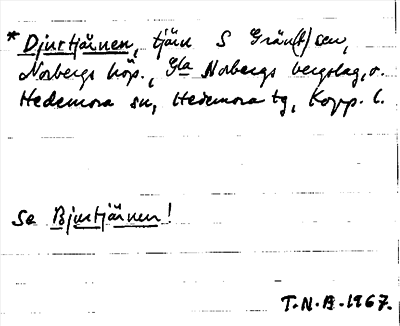 * Djurtjärnen, tjärn S Gränsen,
Norbergs köp., Gla Norbergs bergslag, o.
Hedemora sn, Hedemora tg, Kopp. l.
Se Bjurtjärnen!
T.N.B. 1967.